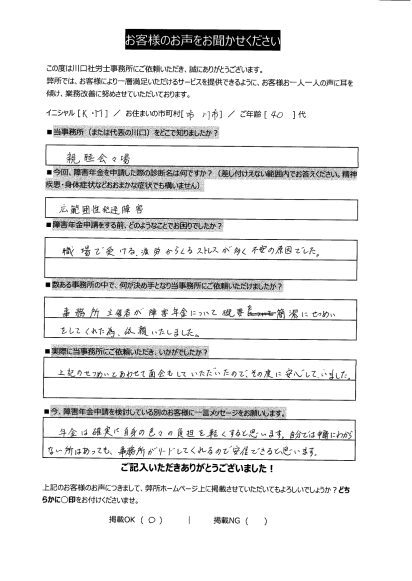 お客様のお声をお聞かせください
この度は川口社労士事務所にご依頼いただき、誠にありがとうございます。
弊所では、お客様により一層満足いただけるサービスを提供できるように、お客様お一人一人の声に耳を
傾け、業務改善に努めさせていただいております。
イニシャル [ K・M ] / お住まいの市町村 [ 市川市 ] / ご年齢 [ 40 ] 代
■当事務所（または代表の川口）をどこで知りましたか？
親睦会の場
■今回、障害年金を申請した際の診断名は何ですか？（差し付けえない範囲内でお答えください。精神
疾患・身体症状などおおまかな症状でも構いません）
広範囲性発達障害
■障害年金申請をする前、どのようなことでお困りでしたか？
職場で受ける、疲労からくるストレスが多く不安の原因でした。
■数ある事務所の中で、何が決め手となり当事務所にご依頼いただけましたか？
事務所主催者が障害年金について概要を簡潔にせつめい
をしてくれた為、依頼いたしました。
■実際に当事務所にご依頼いただき、いかがでしたか？
上記のせつめいとあわせて面会もしていただいたので、その度に安心していました。
■今、障害年金申請を検討している別のお客様に一言メッセージをお願いします。
年金は確実に自身の色々の負担を軽くすると思います。自分では申請にわから
ない所はあっても、事務所がリードしてくれるので安信できると思います。
ご記入いただきありがとうございました！
上記のお客様のお声につきまして、弊所ホームページ上に掲載させていただいてもよろしいでしょうか？どち
らかに〇印をお付けくださいませ。
掲載OK （ 〇 ） | 掲載NG （ ）